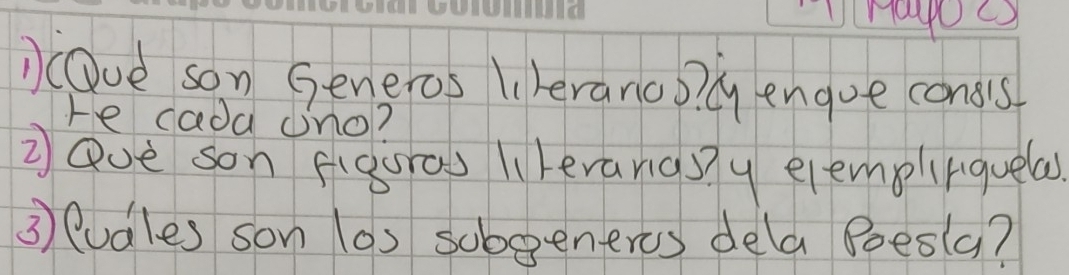 Comercial Colombia
Mayo 25
1) ¿Qué son Generos literarios? ¿y enque consis
te cada uno?
2) Qué son figuras literarias? y ejemplifiquelas.
3) Cuáles son los subgeneros dela Poesía?